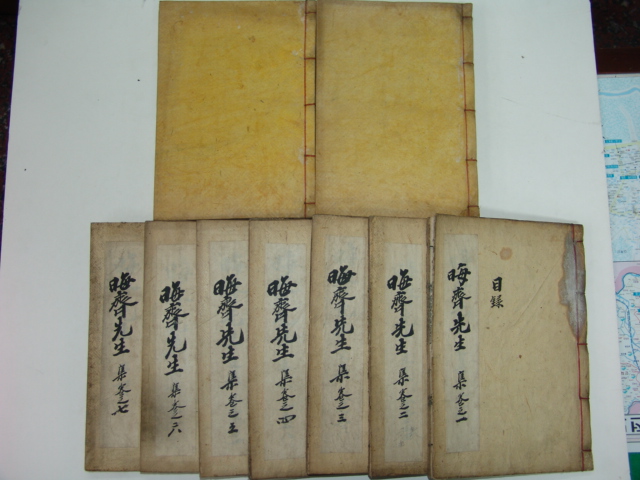 目錄
晦齋先生 集卷之一
晦齋先生 集卷之二
晦齋先生 集卷之三
晦齋先生 集卷之四
晦齋先生 集卷之五
晦齋先生 集卷之六
晦齋先生 集卷之七